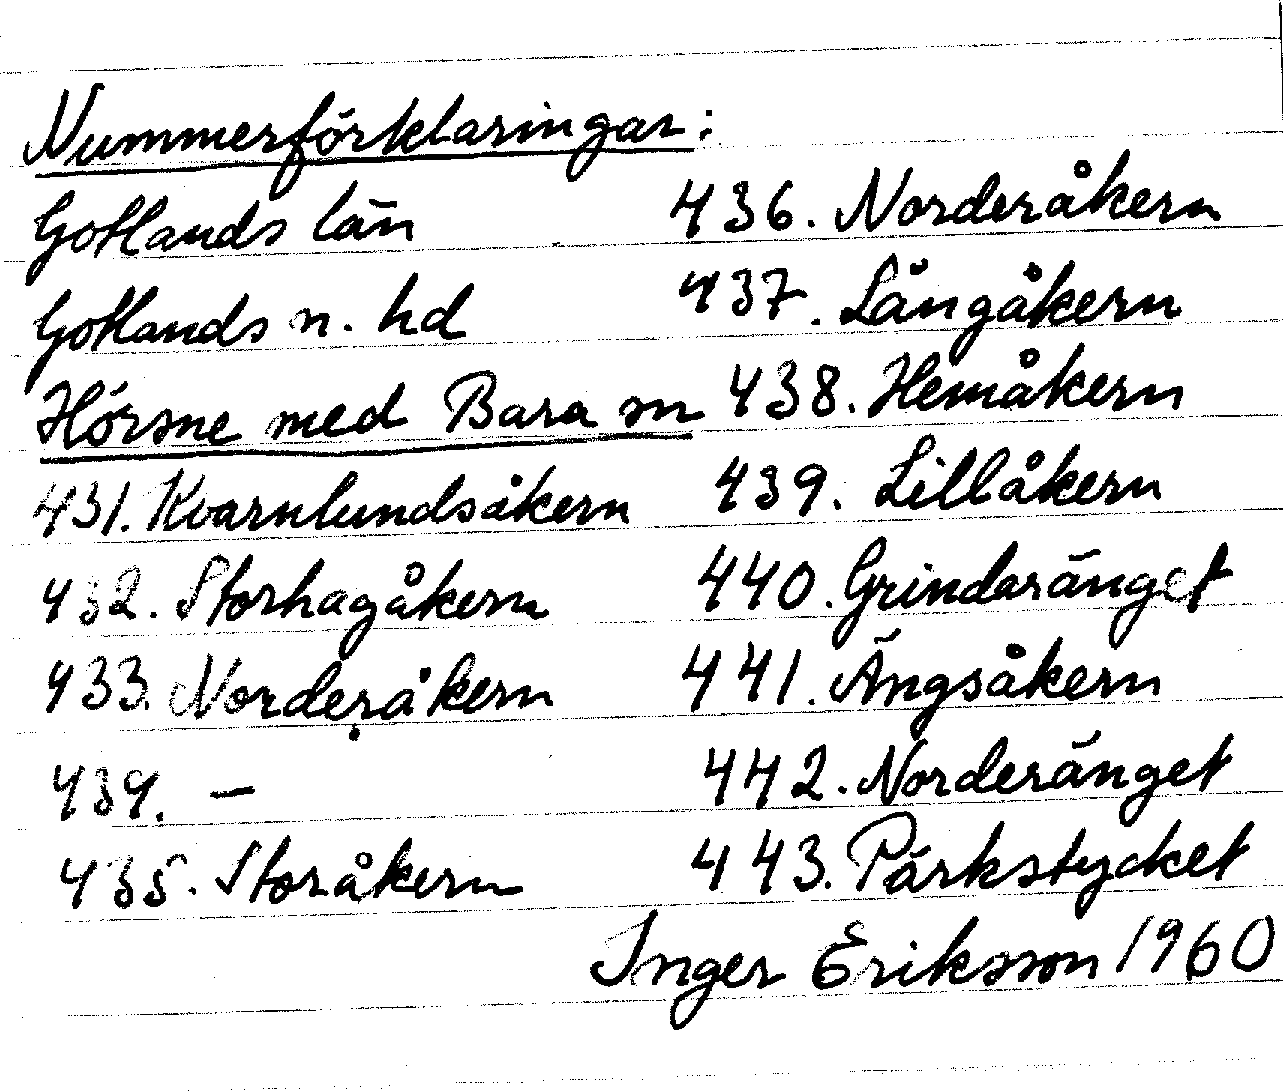 Nummerförklaringar:
Gotlands län
Gotlands n. hd
Hörsne med Bara sn
431. Kvarnlundsåkern
432. Storhagåkern
433. Norderåkern
434. —
435. Storåkern
436. Norderåkern
437. Långåkern
438. Hemåkern
439. Lillåkern
440. Grindaränget
441. Ängsåkern
442. Norderänget
443. Parkstycket
Inger Eriksson 1960